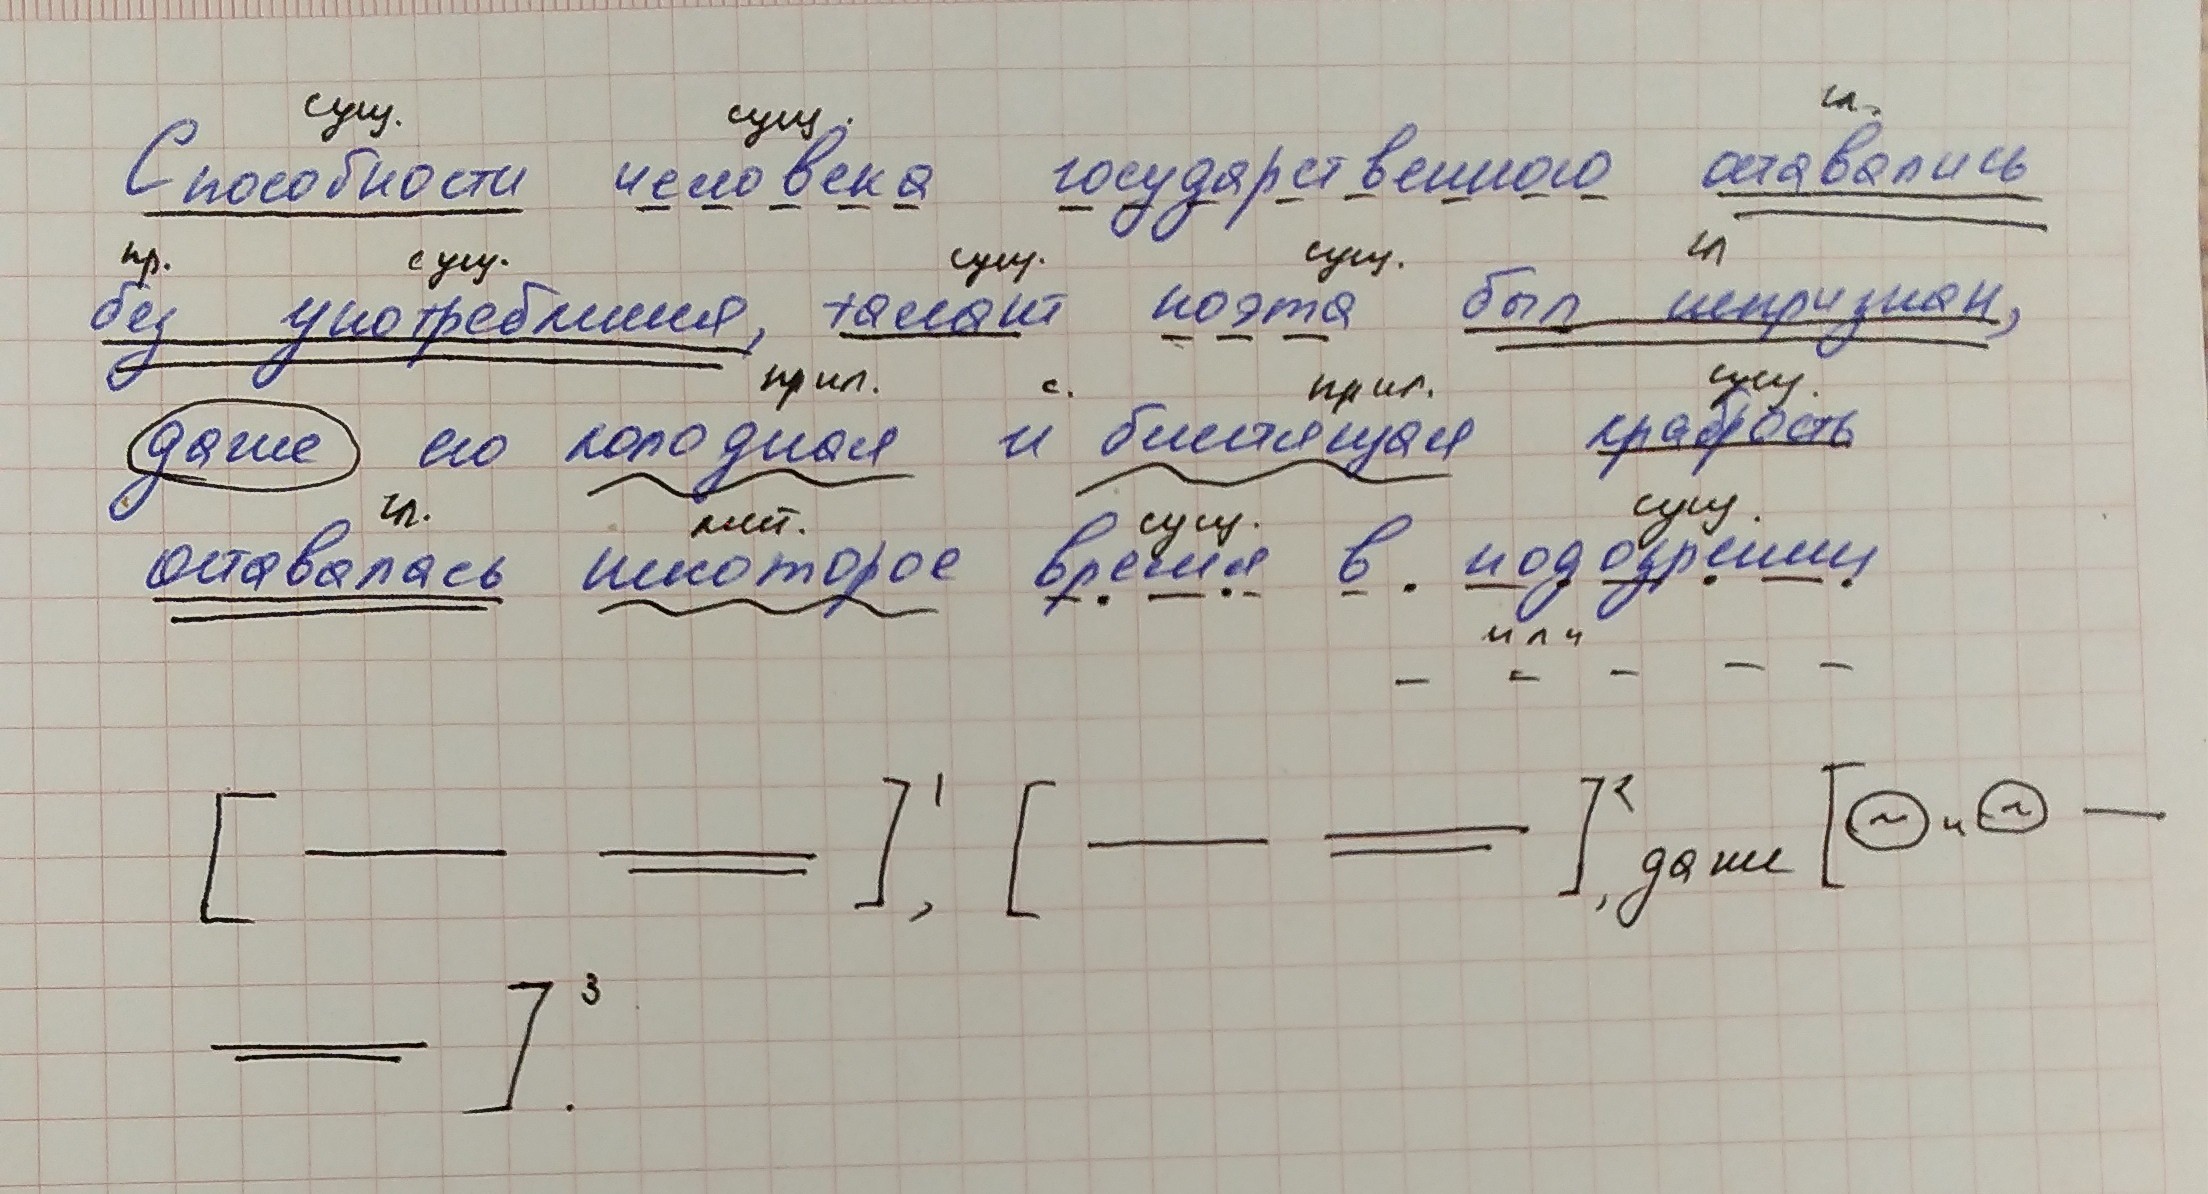 сущ. сущ. гл.
Способности человека государственного оставались
пр. сущ. сущ. сущ. гл
без употребления, талант поэта был непризнан,
прил. с. прил. сущ.
даже его холодная и блестящая храбрость
гл. мест. сущ. сущ.
оставалась некоторое время в подозрении
или
[ ]1, [ ]2, даже [ и
]3.